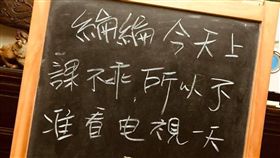 綸綸今天上
課不乖,所以不
准看电視一天